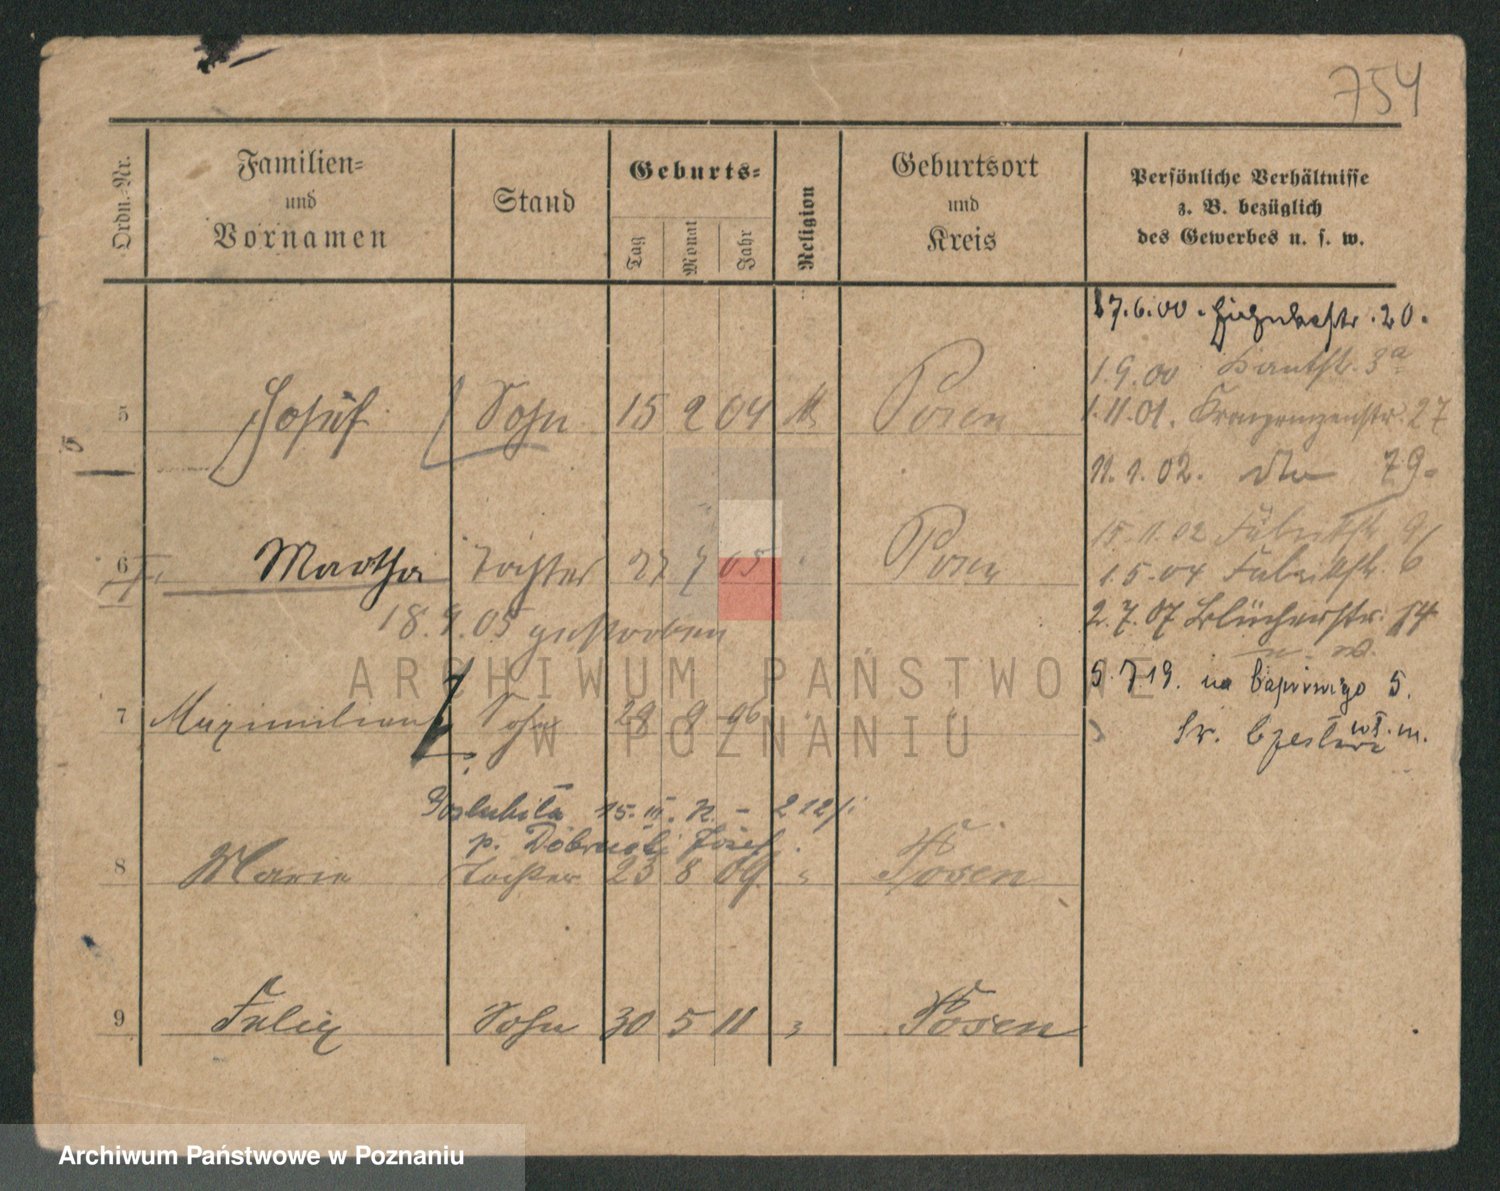 754
Ordn.-Nr.
Familien- und Vornamen
Stand
Geburts-
Tag Monat Jahr
Religion
Geburtsort und Kreis
Persönliche Verhältnisse
z. B. bezüglich
des Gewerbes u. s. w.
5 Josef Sohn 15 2 04 Posen
6 Martha Tochter 27 7 05 Posen
18.9.05 gestorben
7 Maximilian Sohn 29 9 06
15. III. 2 12/
p. Dobruski Józef
8 Marie Tochter 23 8 09 " Posen
9 Felix Sohn 30 5 11 " Posen
17.6.00. 20.
1.9.00 3a
1.11.01. Kronprinzenstr. 27
11.1.02. dto 79.
15.11.02 Fabrikstr.
1.5.04 Fabrikstr. 6
2.7.07 Blücherstr. 14
5.7.19. na 5.
ARCHIWUM PAŃSTWOWE
W POZNANIU
Archiwum Państwowe w Poznaniu